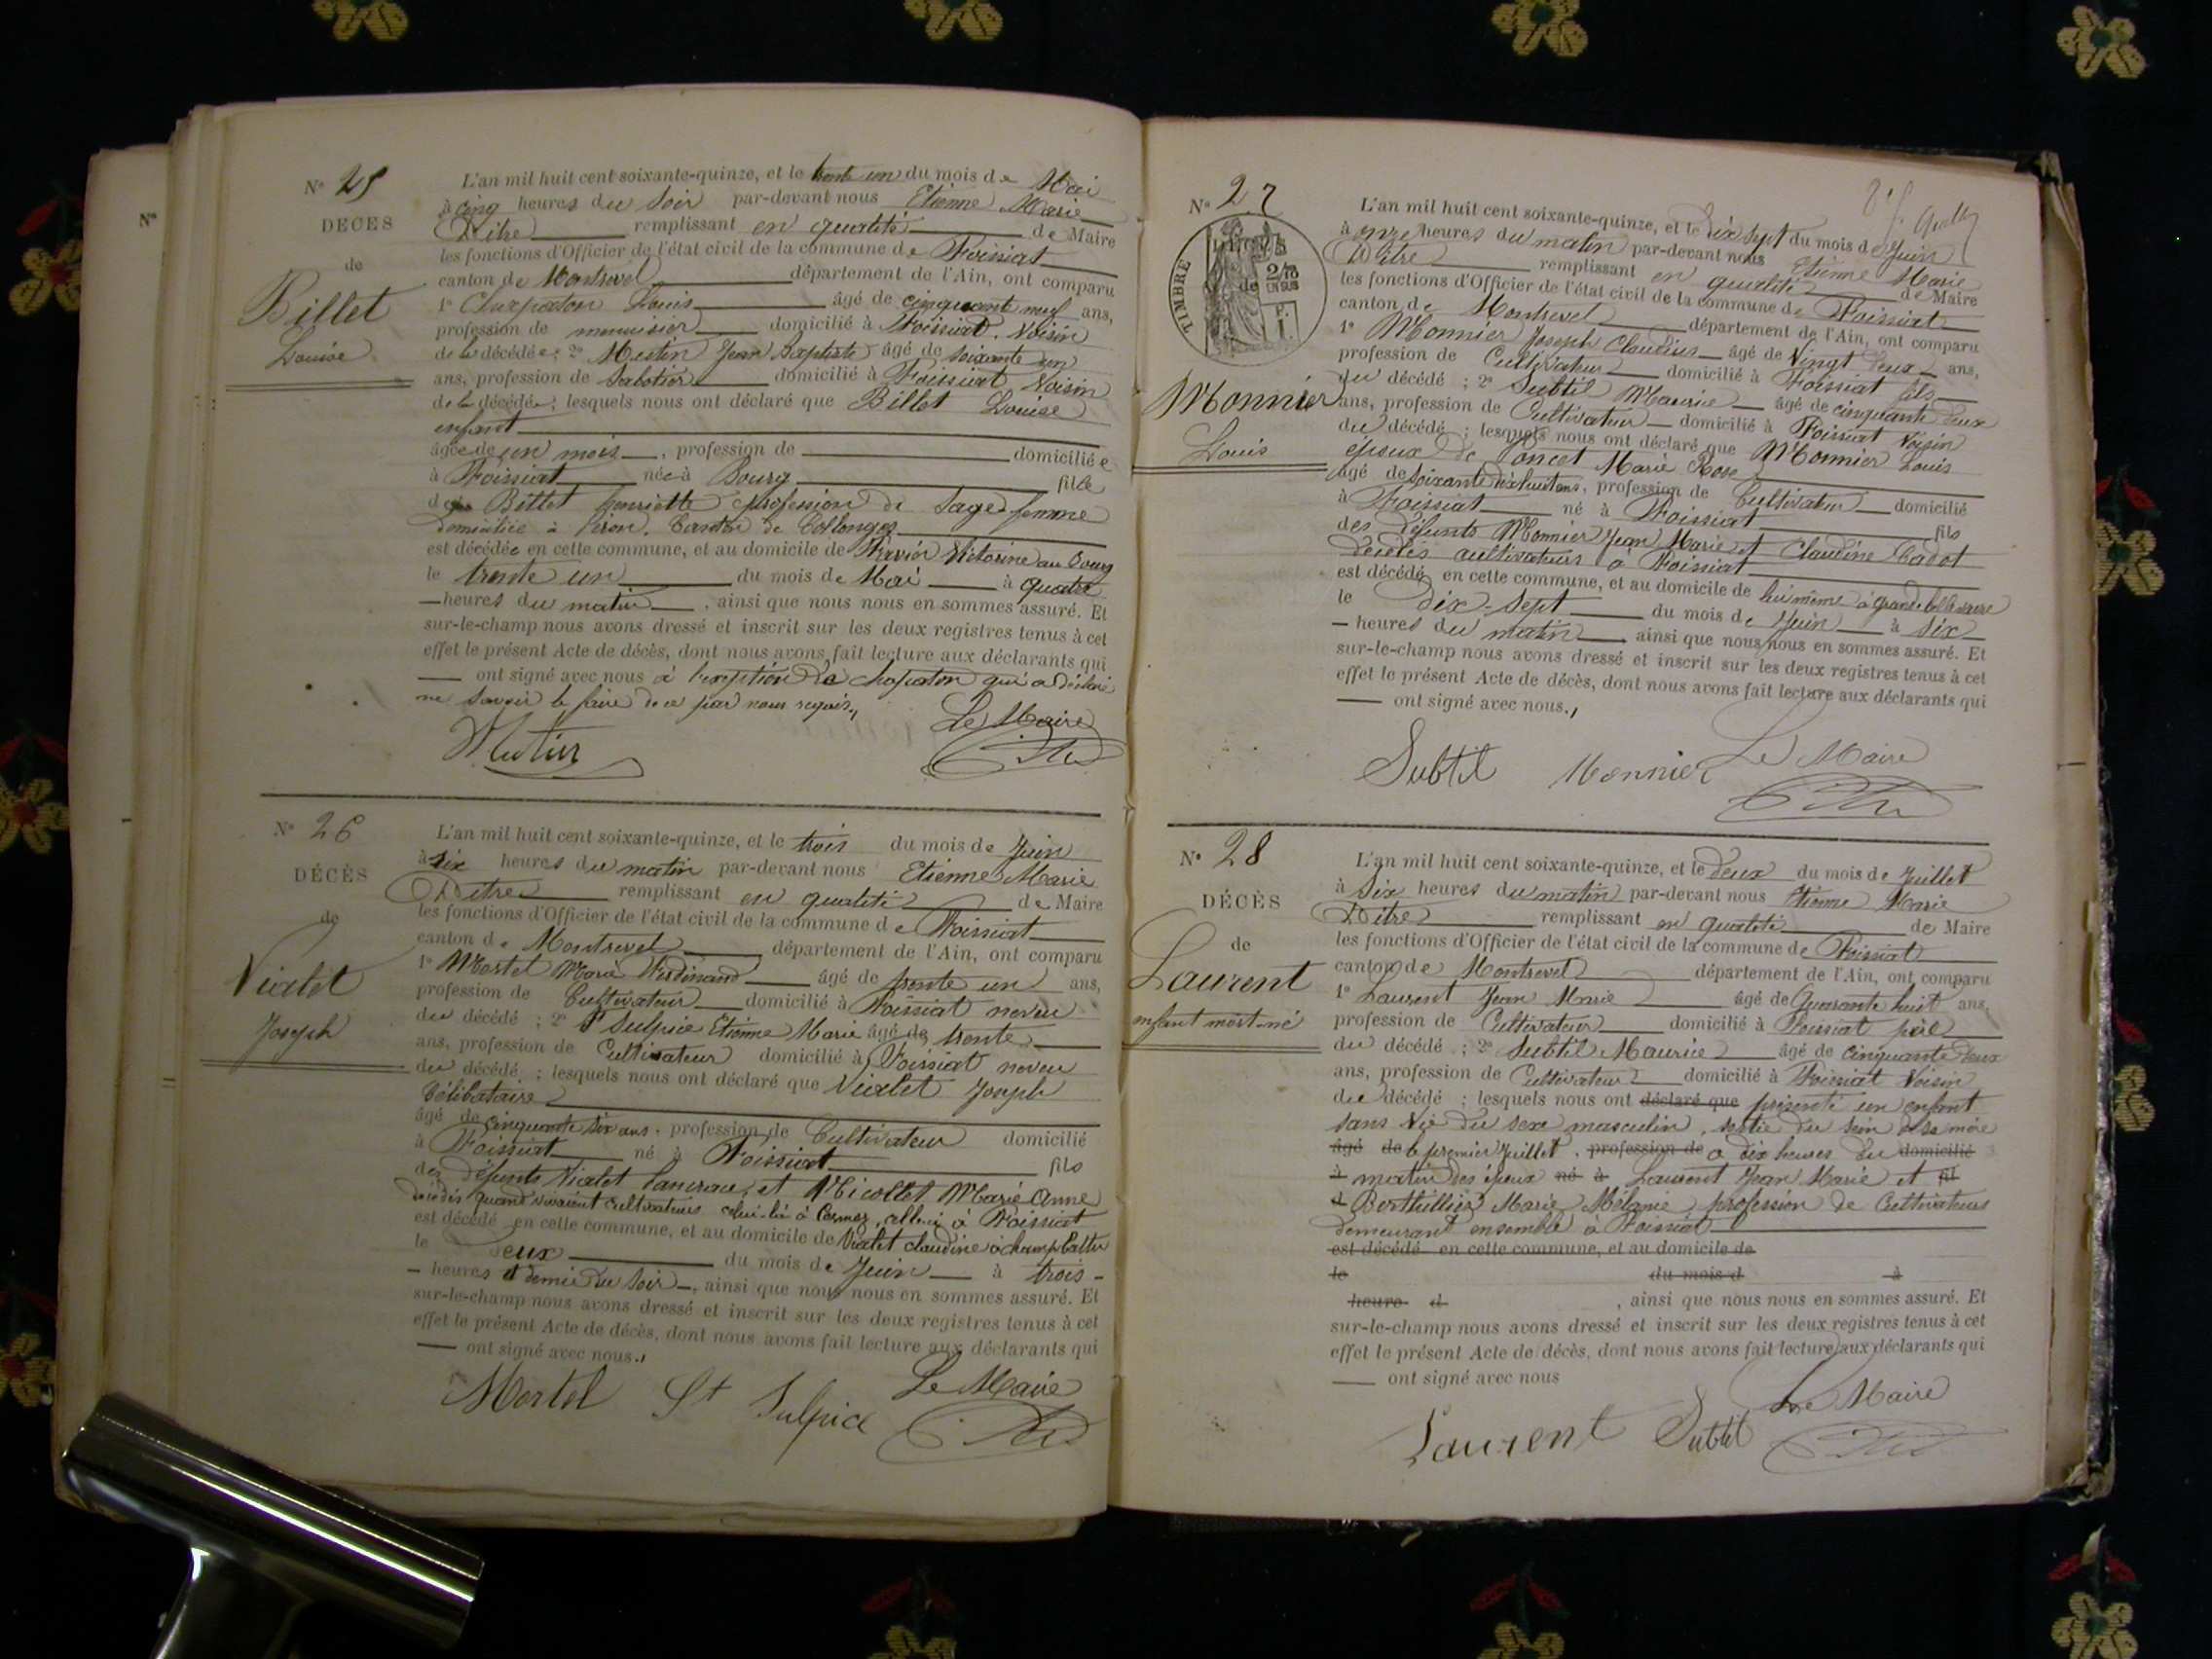 N°
N° 25
DECES
de
Billet
Louise
L'an mil huit cent soixante-quinze, et le trente un du mois de Mai
à cinq heures du soir par-devant nous Etienne Marie
remplissant en qualité de Maire
les fonctions d'Officier de l'état civil de la commune de Foissiat
canton de Montrevel département de l'Ain, ont comparu
1° Louis âgé de cinquante neuf ans,
profession de menuisier domicilié à Foissiat Voisin
de la décédée ; 2° Jean Baptiste âgé de soixante un
ans, profession de sabotier domicilié à Foissiat Voisin
de la décédée ; lesquels nous ont déclaré que Billet Louise
enfant
âgée de un mois, profession de domiciliée
à Foissiat née à Bourg fille
de Billet henriette profession de Sage-femme
domiciliée à Canton de Collonges
est décédée en cette commune, et au domicile de Victorine au Bourg
le trente un du mois de Mai à quatre
heures du matin, ainsi que nous nous en sommes assuré. Et
sur-le-champ nous avons dressé et inscrit sur les deux registres tenus à cet
effet le présent Acte de décès, dont nous avons fait lecture aux déclarants qui
ont signé avec nous à l'exception de qui a déclaré
ne savoir le faire de ce par nous requis.
Le Maire
N° 26
DÉCÈS
de
Vialet
Joseph
L'an mil huit cent soixante-quinze, et le trois du mois de Juin
à six heures du matin par-devant nous Etienne Marie
remplissant en qualité de Maire
les fonctions d'Officier de l'état civil de la commune de Foissiat
canton de Montrevel département de l'Ain, ont comparu
1° Mortel Marie Ferdinand âgé de trente un ans,
profession de Cultivateur domicilié à Foissiat neveu
du décédé ; 2° St Sulpice Etienne Marie âgé de trente
ans, profession de Cultivateur domicilié à Foissiat neveu
du décédé ; lesquels nous ont déclaré que Vialet Joseph
Célibataire
âgé de cinquante six ans, profession de Cultivateur domicilié
à Foissiat né à Foissiat fils
des défunts Vialet et Nicollet Marie Anne
décédés quand vivaient cultivateurs celui-là à celle-ci à Foissiat
est décédé en cette commune, et au domicile de Vialet claudine à
le deux du mois de Juin à trois
heures et demie du soir, ainsi que nous nous en sommes assuré. Et
sur-le-champ nous avons dressé et inscrit sur les deux registres tenus à cet
effet le présent Acte de décès, dont nous avons fait lecture aux déclarants qui
ont signé avec nous.
Mortel St Sulpice Le Maire
N° 27
TIMBRE
Monnier
Louis
L'an mil huit cent soixante-quinze, et le dix sept du mois de Juin
à onze heures du matin par-devant nous Etienne Marie
remplissant en qualité de Maire
les fonctions d'Officier de l'état civil de la commune de Foissiat
canton de Montrevel département de l'Ain, ont comparu
1° Monnier Joseph Claudius âgé de Vingt deux ans,
profession de Cultivateur domicilié à Foissiat fils
du décédé ; 2° Subtil Maurice âgé de cinquante deux
ans, profession de Cultivateur domicilié à Foissiat Voisin
du décédé ; lesquels nous ont déclaré que Monnier Louis
époux de Poncet Marie Rose
âgé de soixante dix huit ans, profession de Cultivateur domicilié
à Foissiat né à Foissiat fils
des défunts Monnier Jean Marie et Claudine
décédés cultivateurs à Foissiat
est décédé en cette commune, et au domicile de lui même à
le dix-sept du mois de Juin à six
heures du matin, ainsi que nous nous en sommes assuré. Et
sur-le-champ nous avons dressé et inscrit sur les deux registres tenus à cet
effet le présent Acte de décès, dont nous avons fait lecture aux déclarants qui
ont signé avec nous.
Subtil Monnier Le Maire
N° 28
DÉCÈS
de
Laurent
enfant mort-né
L'an mil huit cent soixante-quinze, et le deux du mois de Juillet
à six heures du matin par-devant nous Etienne Marie
remplissant en qualité de Maire
les fonctions d'Officier de l'état civil de la commune de Foissiat
canton de Montrevel département de l'Ain, ont comparu
1° Laurent Jean Marie âgé de Quarante huit ans,
profession de Cultivateur domicilié à Foissiat père
du décédé ; 2° Subtil Maurice âgé de cinquante deux
ans, profession de Cultivateur domicilié à Foissiat Voisin
du décédé ; lesquels nous ont déclaré que présenté un enfant
sans vie du sexe masculin, sortie du sein de sa mère
âgé de le premier Juillet, profession de à dix heures du domicilié
à matin des époux né à Laurent Jean Marie et fil
d Berthillier Marie Mélanie profession de Cultivateurs
demeurant ensemble à Foissiat
est décédé en cette commune, et au domicile de
le du mois d à
heure d , ainsi que nous nous en sommes assuré. Et
sur-le-champ nous avons dressé et inscrit sur les deux registres tenus à cet
effet le présent Acte de décès, dont nous avons fait lecture aux déclarants qui
ont signé avec nous
Laurent Subtil Le Maire